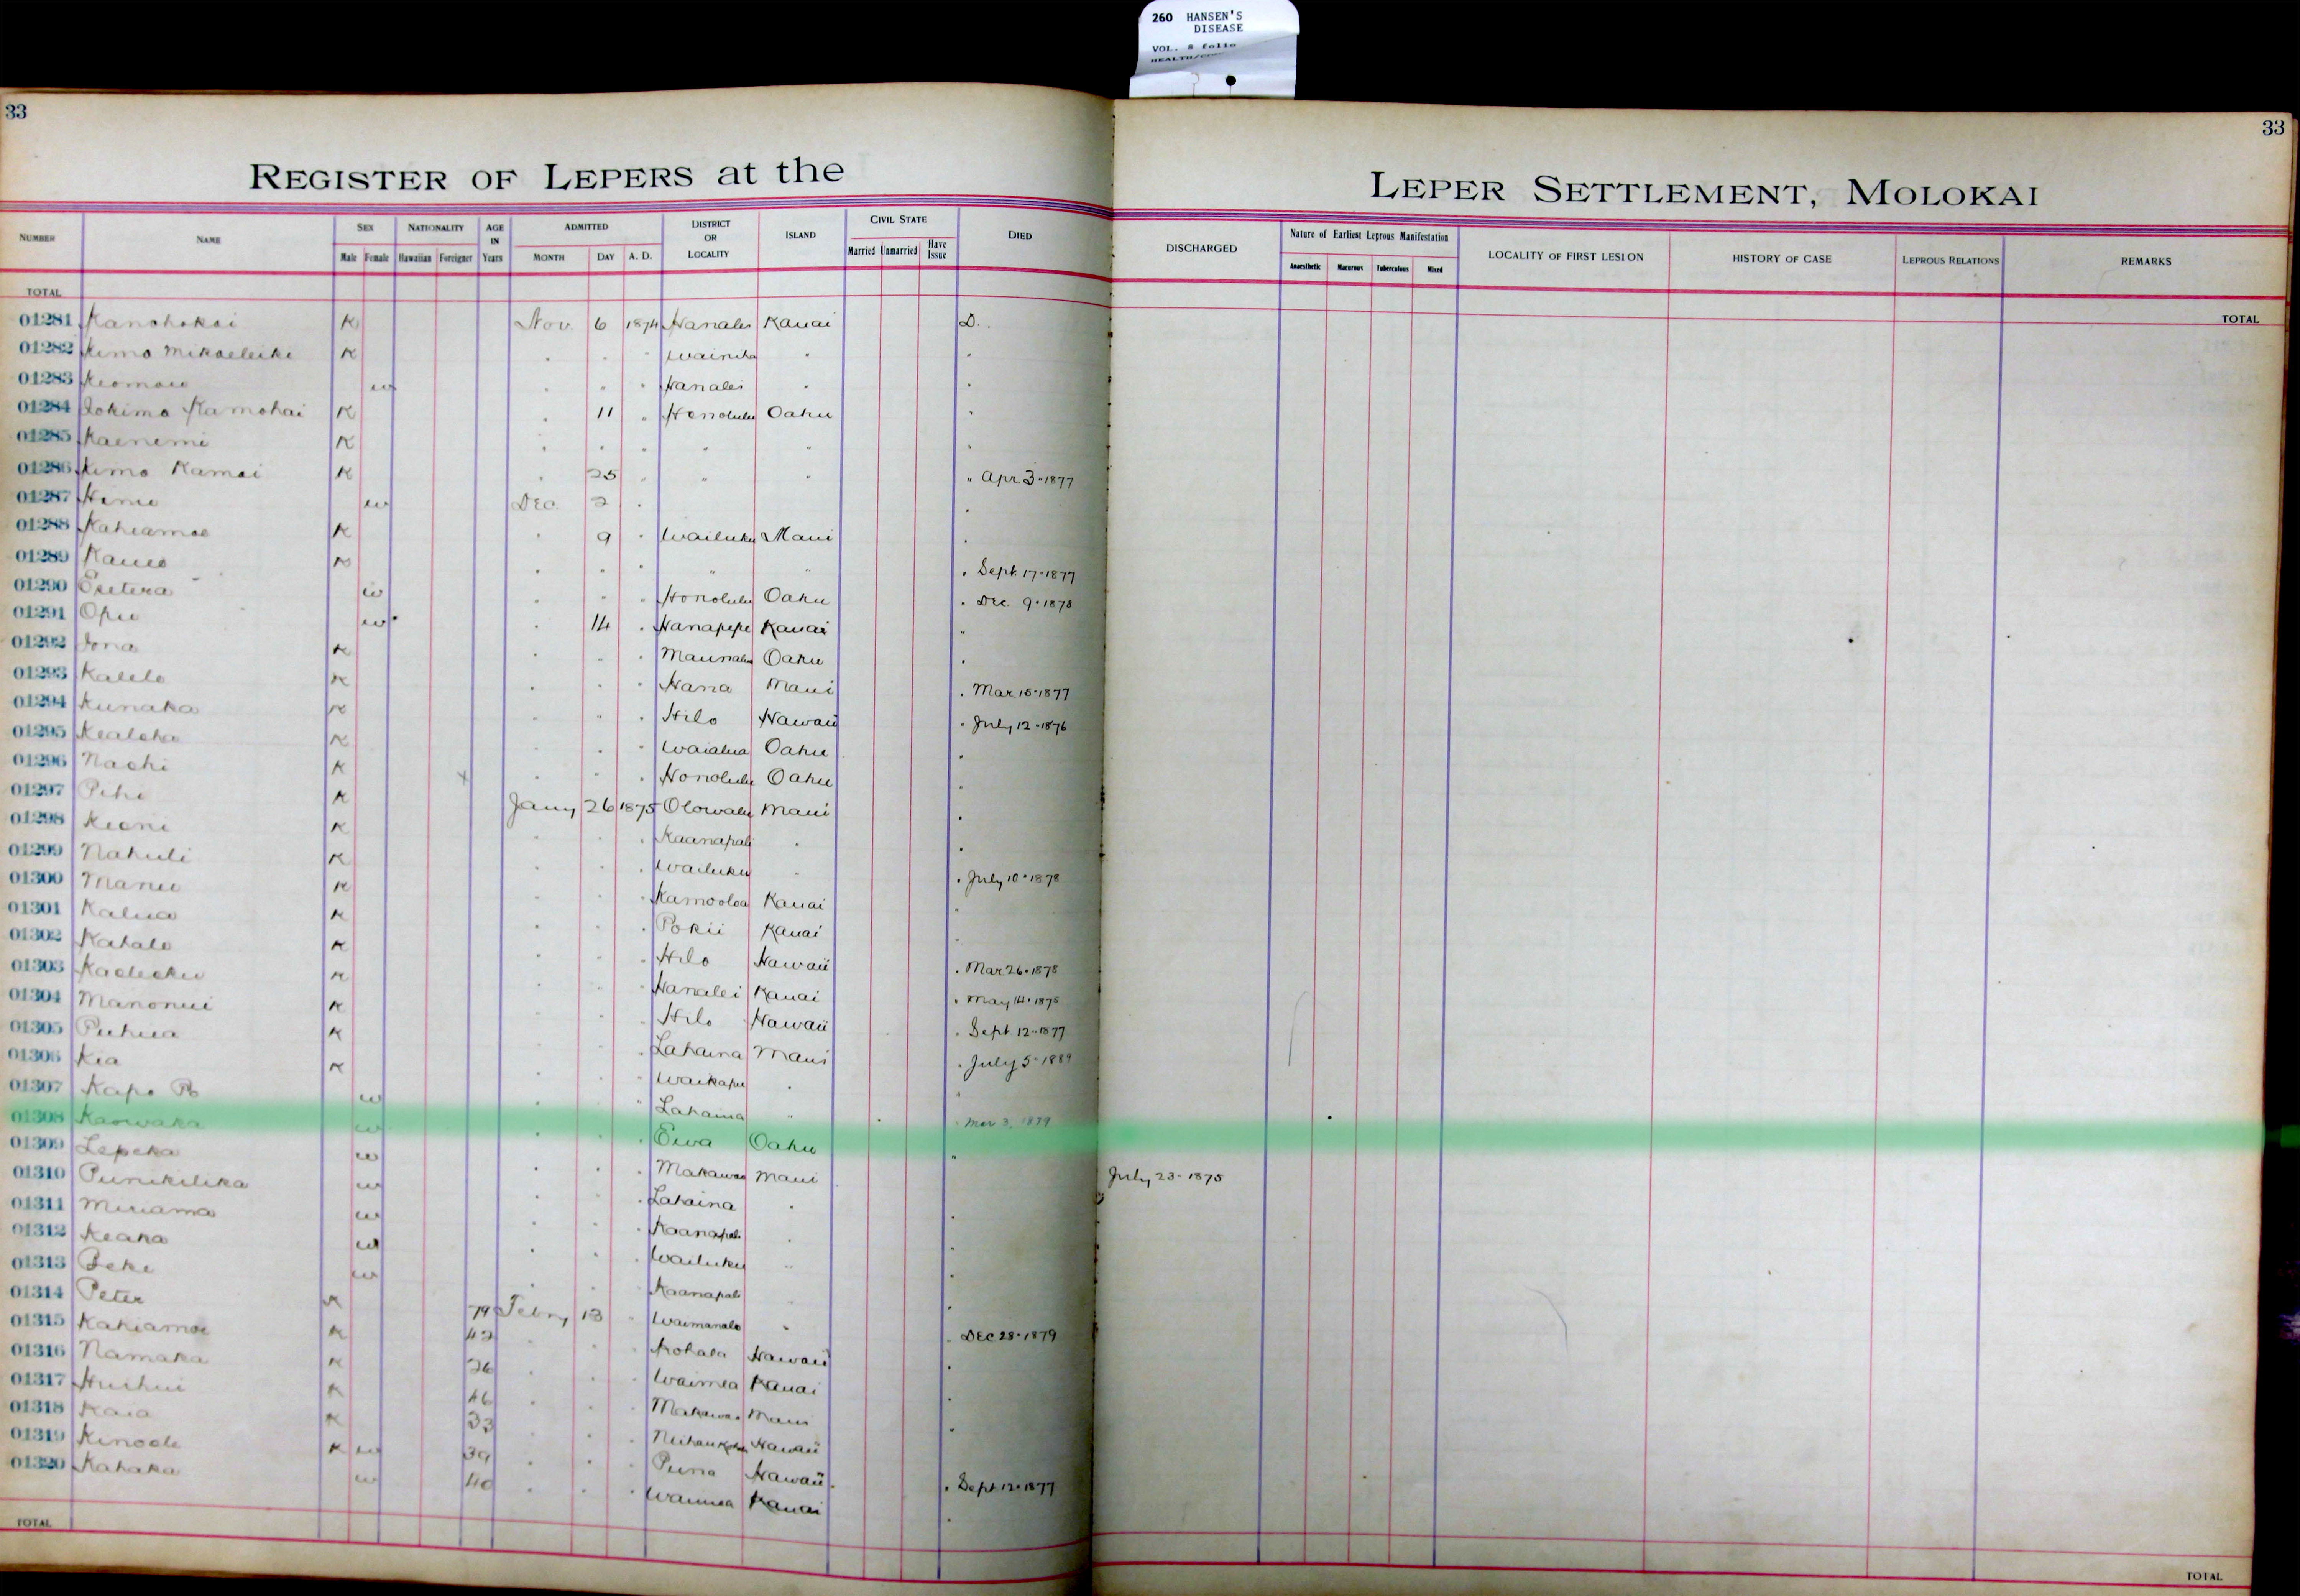 260 HANSEN'S
DISEASE
VOL. 8 folio
33
33
REGISTER OF LEPERS at the LEPER SETTLEMENT, MOLOKAI
NUMBER NAME SEX NATIONALITY AGE IN Years ADMITTED DISTRICT OR LOCALITY ISLAND CIVIL STATE DIED DISCHARGED Nature of Earliest Leprous Manifestation LOCALITY OF FIRST LESION HISTORY OF CASE LEPROUS RELATIONS REMARKS
Male Female Hawaiian Foreigner MONTH DAY A. D. Married Unmarried Have Issue Anaesthetic Macurous Tuberculous Mixed
TOTAL TOTAL
01281 Kanohokai K Nov. 6 1874 Hanalei Kauai D.
01282 Kimo Mikaeleike K " " " Wainiha " "
01283 Keomaw w " " " Hanalei " "
01284 Iokimo Kamohai K " 11 " Honolulu Oahu "
01285 Kaenemi K " " " " " "
01286 Kimo Kamai K " 25 " " " " Apr 3 - 1877
01287 w Dec. 2 " "
01288 Kahiamoe K " 9 " Wailuku Maui "
01289 Kaueo K " " " " " " Sept. 17 - 1877
01290 Esetera w " " " Honolulu Oahu " Dec. 9 - 1878
01291 Opu w " 14 " Hanapepe Kauai "
01292 Iona K " " " Maunalua Oahu "
01293 Kalelo K " " " Hana Maui " Mar 15 - 1877
01294 Kunaka K " " " Hilo Hawaii " July 12 - 1876
01295 Kealoha K " " " Waialua Oahu "
01296 Naohi K x " " " Honolulu Oahu "
01297 Pihi K Jany 26 1875 Olowalu Maui "
01298 Keoni K " " " Kaanapali " "
01299 Nahuli K " " " Wailuku " " July 10 - 1878
01300 Manu K " " " Kamooloa Kauai "
01301 Kalua K " " " Pokii Kauai "
01302 Kahalo K " " " Hilo Hawaii " Mar 26 - 1878
01303 K " " " Hanalei Kauai " May 14 - 1875
01304 Manonui K " " " Hilo Hawaii " Sept 12 - 1877
01305 Puhua K " " " Lahaina Maui " July 5 - 1889
01306 Kea K " " " Waikapu " "
01307 Kapo w " " " Lahaina " " Mar 3, 1879
01308 Kaowaka w " " " Ewa Oahu "
01309 Lepeka w " " " Makawao Maui July 23 - 1875
01310 Punikilika w " " " Lahaina " "
01311 Miriama w " " " Kaanapali " "
01312 Keaka w " " " Wailuku " "
01313 Beke w " " " Kaanapali " "
01314 Peter K 79 Febry 13 " Waimanalo " " Dec 28 - 1879
01315 Kahiamoe K 42 " " " Kohala Hawaii "
01316 Namaka K 26 " " " Waimea Kauai "
01317 Huihui K 46 " " " Makawao Maui "
01318 Kaia K 33 " " " Hawaii
01319 Kinoole K w 39 " " " Puna Hawaii " Sept 12 - 1877
01320 Kahaka w 40 " " " Waimea Kauai "
TOTAL TOTAL